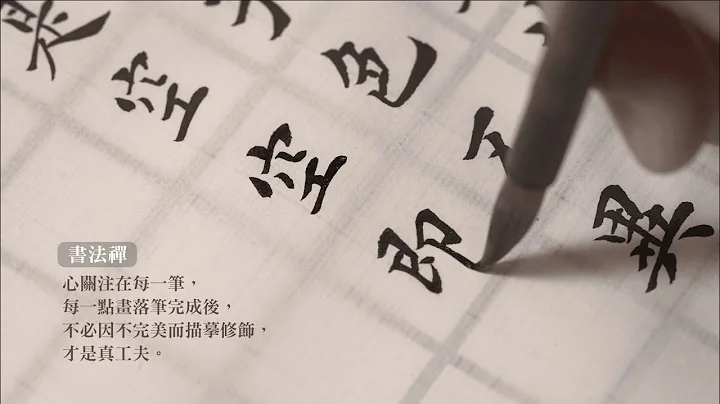 異
即
色空
空
異
書法禪
心關注在每一筆，
每一點畫落筆完成後，
不必因不完美而描摹修飾，
才是真工夫。